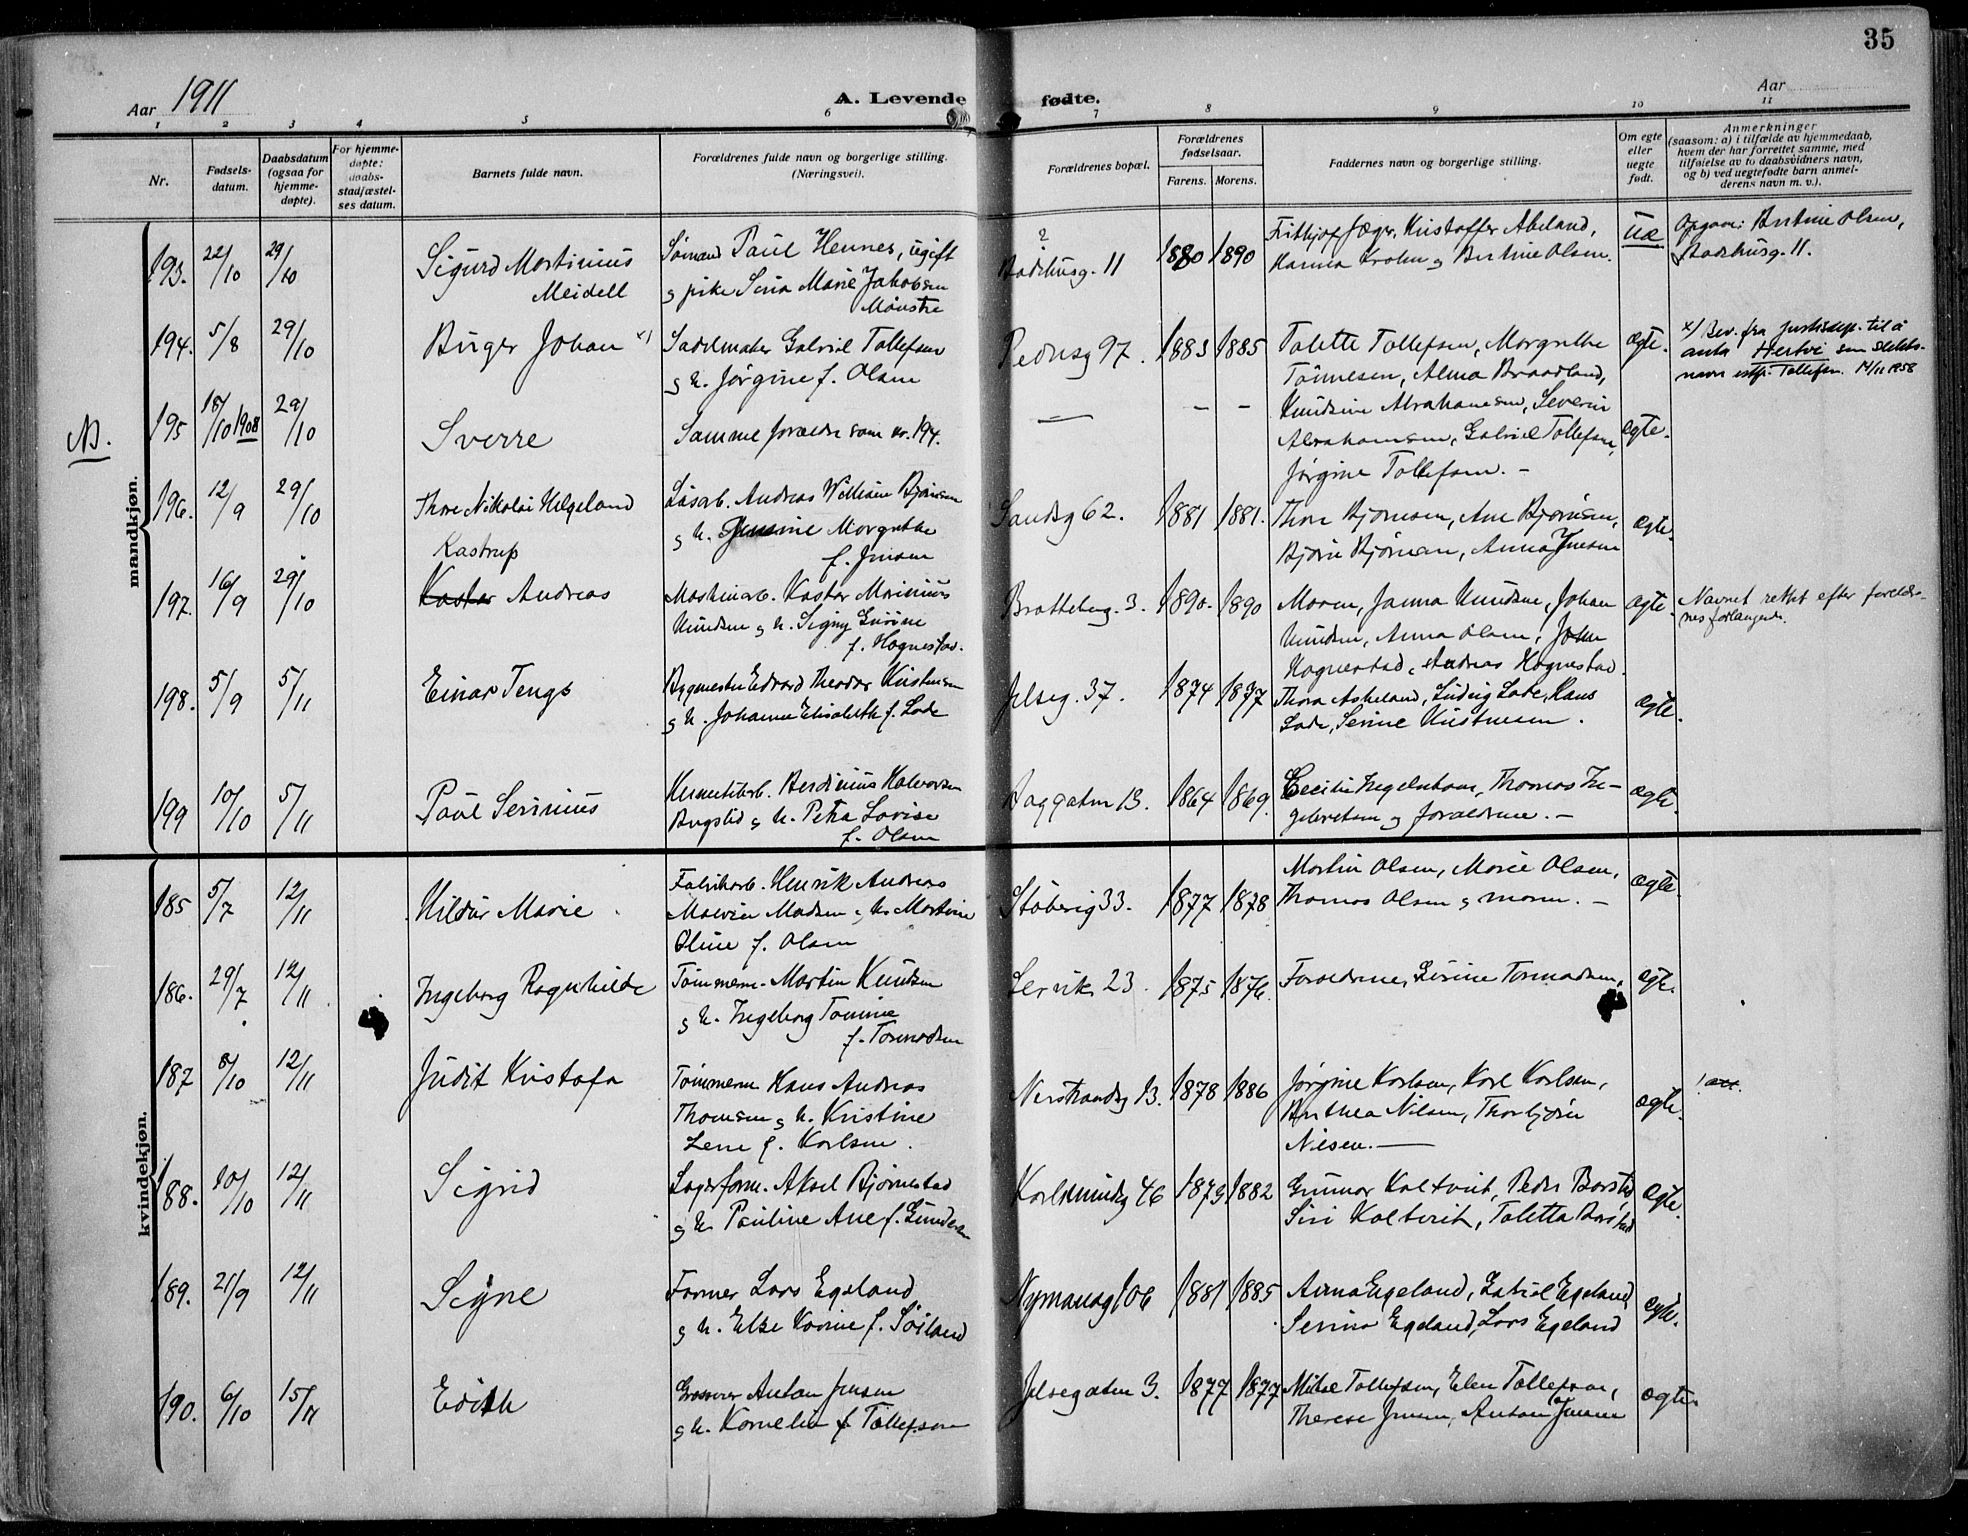 35
Aar 1911
A. Levende fødte.
Aar
1 2 3 4 5 6 7 8 9 10 11
Nr.
Fødsels-
datum.
Daabsdatum
(ogsaa for
hjemme-
døpte).
For hjemme-
døpte:
daabs-
stadfæstel-
ses datum.
Barnets fulde navn.
Forældrenes fulde navn og borgerlige stilling.
(Næringsvei).
Forældrenes bopæl.
Forældrenes
fødselsaar.
Farens. Morens.
Faddernes navn og borgerlige stilling.
Om egte
eller
uegte
født.
Anmerkninger
(saasom: a) i tilfælde av hjemmedaab,
hvem der har forrettet samme, med
tilføielse av to daabsvidners navn,
og b) ved uegtefødte barn anmel-
derens navn m. v.).
mandkjøn.
193. 22/10 29/10
Sigurd Martinius
Meidell
Sømand Paul Hennes, ugift
g pike Sina Marie Jakobsen
Mønstre
?
Badehusg. 11
1880 1890
Fithjof Jæger, Kristoffer Abeland,
Hanna Krohn g Bertine Olsen.
uæ
Opgave: Bertine Olsen,
Badehusg. 11.
194. 5/8 29/10
Birger Johan x)
Sadelmaker Gabriel Tollefsen
g h. Jørgine f. Olsen
Pedersg 97.
1883 1885
Talette Tollefsen, Margrethe
Tønnesen, Alma Braadland,
ægte.
x) Bev. fra Justisdep. til å
anta Hertvi som slekts-
navn istf. Tollefsen. 14/11 1958
NB.
195 18/10 1908 29/10
Sverre
Samme forældre som nr. 194.
— – –
Knudsine Abrahamsen, Severin
Abrahamsen, Gabriel Tollefsen,
Jørgine Tollefsen. –
ægte.
196. 12/9 29/10
Thore Nikolai Helgeland
Løsarb. Andreas William Bjørnsen
g h. Jensine Margrethe
f. Jensen
Sandsg 62.
1881 1881.
Thore Bjørnsen, Ane Bjørnsen,
Bjørn Bjørnsen, Anna Jensen
ægte.
197. 16/9 29/10
Kastrup
Kastor Andreas
Maskinarb. Kastor Marinius
Knudsen g h. Signy Gurine
f. Hognestad.
Brattebng. 3.
1890. 1890
Moren, Janna Knudsen, Johan
Knudsen, Anna Olsen, John
Hognestad, Andreas Hognestad.
ægte.
Navnet rettet efter foreldre-
nes forlangende.
198. 5/9 5/11
Einar Tengs
Bygmester Edvard Theodor Kristensen
g h. Johanne Elisabeth f. Lade
Jelseg. 37.
1874 1877
Thora Askeland, Ludvig Lade, Hans
Lade, Serine Kristensen.
ægte.
199 10/10 5/11
Paul Serinius
Hermetikarb. Berdinius Halvorsen
Bugslid g h. Petra Lovise
f. Olsen
Baggaten 13.
1864 1869.
Cecilie Ingebretsen, Thomas In-
gebretsen g forældrene. –
ægte.
kvindekjøn.
185 5/7 12/11
Hildur Marie
Fabrikarb. Henrik Andreas
Malvin Madsen g h. Martine
Oline f. Olsen
Støberig 33.
1877 1878
Martin Olsen, Marie Olsen,
Thomas Olsen g moren. –
ægte.
186. 29/7 12/11
Ingeborg Ragnhilde
Tømmerm. Martin Knudsen
g h. Ingeborg Tomine
f. Tormodsen
Lervik 23.
1875 1876.
Forældrene, Gurine Tormodsen,
ægte.
187 8/10 12/11
Judit Kristofa
Tømmerm Hans Andreas
Thomsen g h. Kristine
Lene f. Karlsen.
Nerstrandsg 13.
1878 1886
Jørgine Karlsen, Karl Karlsen,
Berthea Nilsen, Thorbjørn
Nilsen. —
ægte.
188. 10/10 12/11
Sigrid
Lagerform. Aksel Bjørnstad
g h. Pauline Ane f. Gundersen
Karlsmindsg 46
1879 1882
Gunnar Kaltveit, Peder Borstad
Siri Kaltveit, Taletta Borstad
ægte.
189. 21/9 12/11
Signe
Former Lars Egeland
g h. Else Karine f. Søiland
Nymansg 106
1881 1885
Anna Egeland, Gabriel Egeland
Serina Egeland, Lars Egeland
ægte.
190. 6/10 15/11
Edith
Grosserer Anton Jensen
g h. Kornelia f. Tollefsen
Jelsegaten 3.
1877 1877
Mikal Tollefsen, Elen Tollefsen,
Therese Jensen, Anton Jensen
ægte.